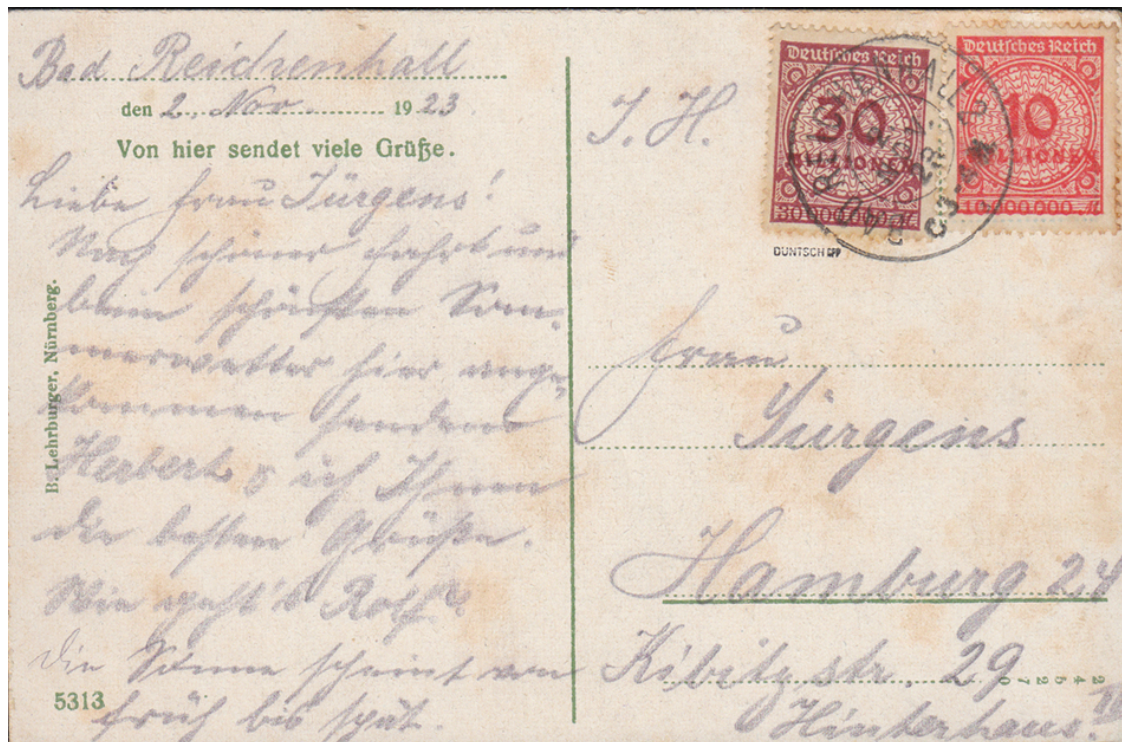 Bad Reichenhall
den 2. Nov. 1923
Von hier sendet viele Grüße.
Liebe Frau Jürgens!
Nach schöner Fahrt und
beim schönsten Som-
merwetter hier ange-
kommen senden
Herbert & ich Ihnen
die besten Grüße.
Wie geht's Rolf?
Die Sonne scheint von
früh bis spät.
5313
B. Lehrburger, Nürnberg.
I. H.
Deutsches Reich
30
MILLIONEN
30000000 M
Deutsches Reich
10
MILLIONEN
10000000 M
BAD REICHENHALL 2
2 NOV. 23
DÜNTSCH BPP
Frau
Jürgens
Hamburg 24
Kibitzstr. 29
Hinterhaus